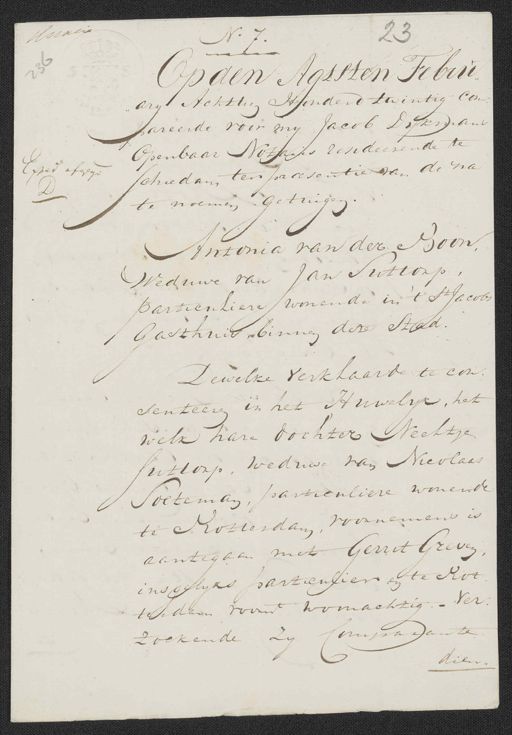 N. 7.
23
236
Op den Agtsten Febru
ary Achttien Honderd twintig Com
pareerde voor my Jacob Dykman
Openbaar Notaris resideerende te
Schiedam, ter presentie van de na
te noemen getuigen.
Exped. afgegn
D
Antonia van der Boon,
Weduwe van Jan Suttorp,
particuliere wonende in 't St Jacobs
Gasthuis binnen deze Stad.
Dewelke verklaarde te con-
senteeren in het Huwelyk, het
welk hare dochter Neeltje
Suttorp, weduwe van Nicolaas
Soeteman, particuliere wonende
te Rotterdam, voornemens is
aantegaan met Gerrit Greven,
insgelyks particulier te Rot
terdam woonachtig. - Ver-
zoekende zy Comparante
dien.